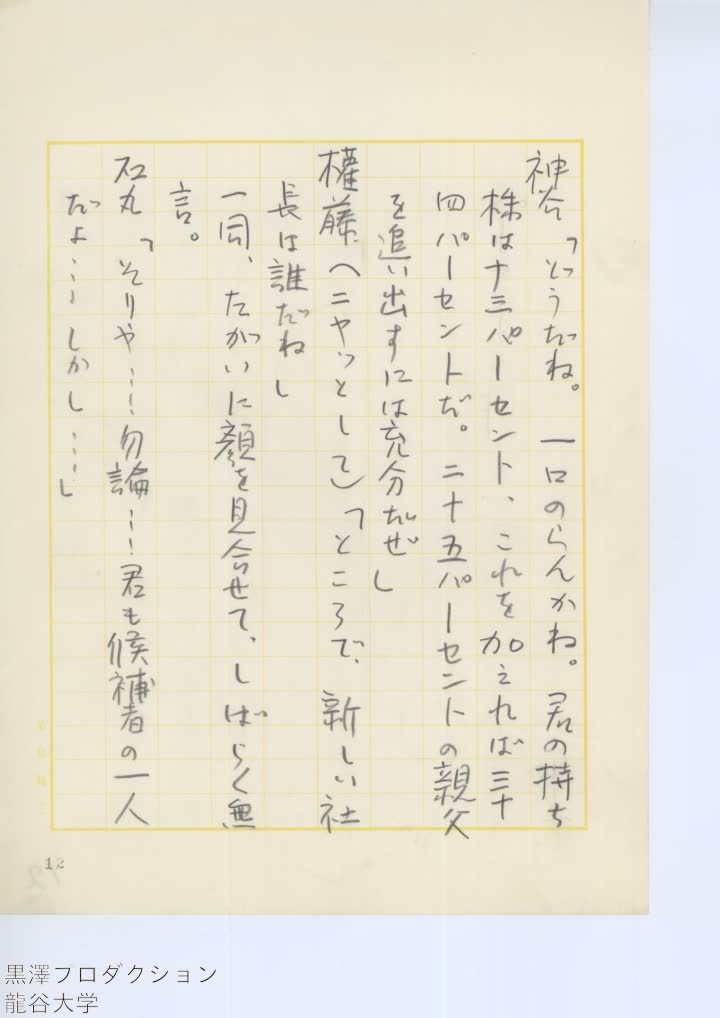 神谷「どうだね。一口のらんかね。君の持ち
株は十三パーセント、これを加えれば三十
四パーセントだ。二十五パーセントの親父
を追い出すには充分だぜ」
権藤（ニヤッとして）「ところで、新しい社
長は誰だね」
一同、たがいに顔を見合せて、しばらく無
言。
石丸「そりや……勿論……君も候補者の一人
だよ……しかし……」
12
黒澤プロダクション
龍谷大学